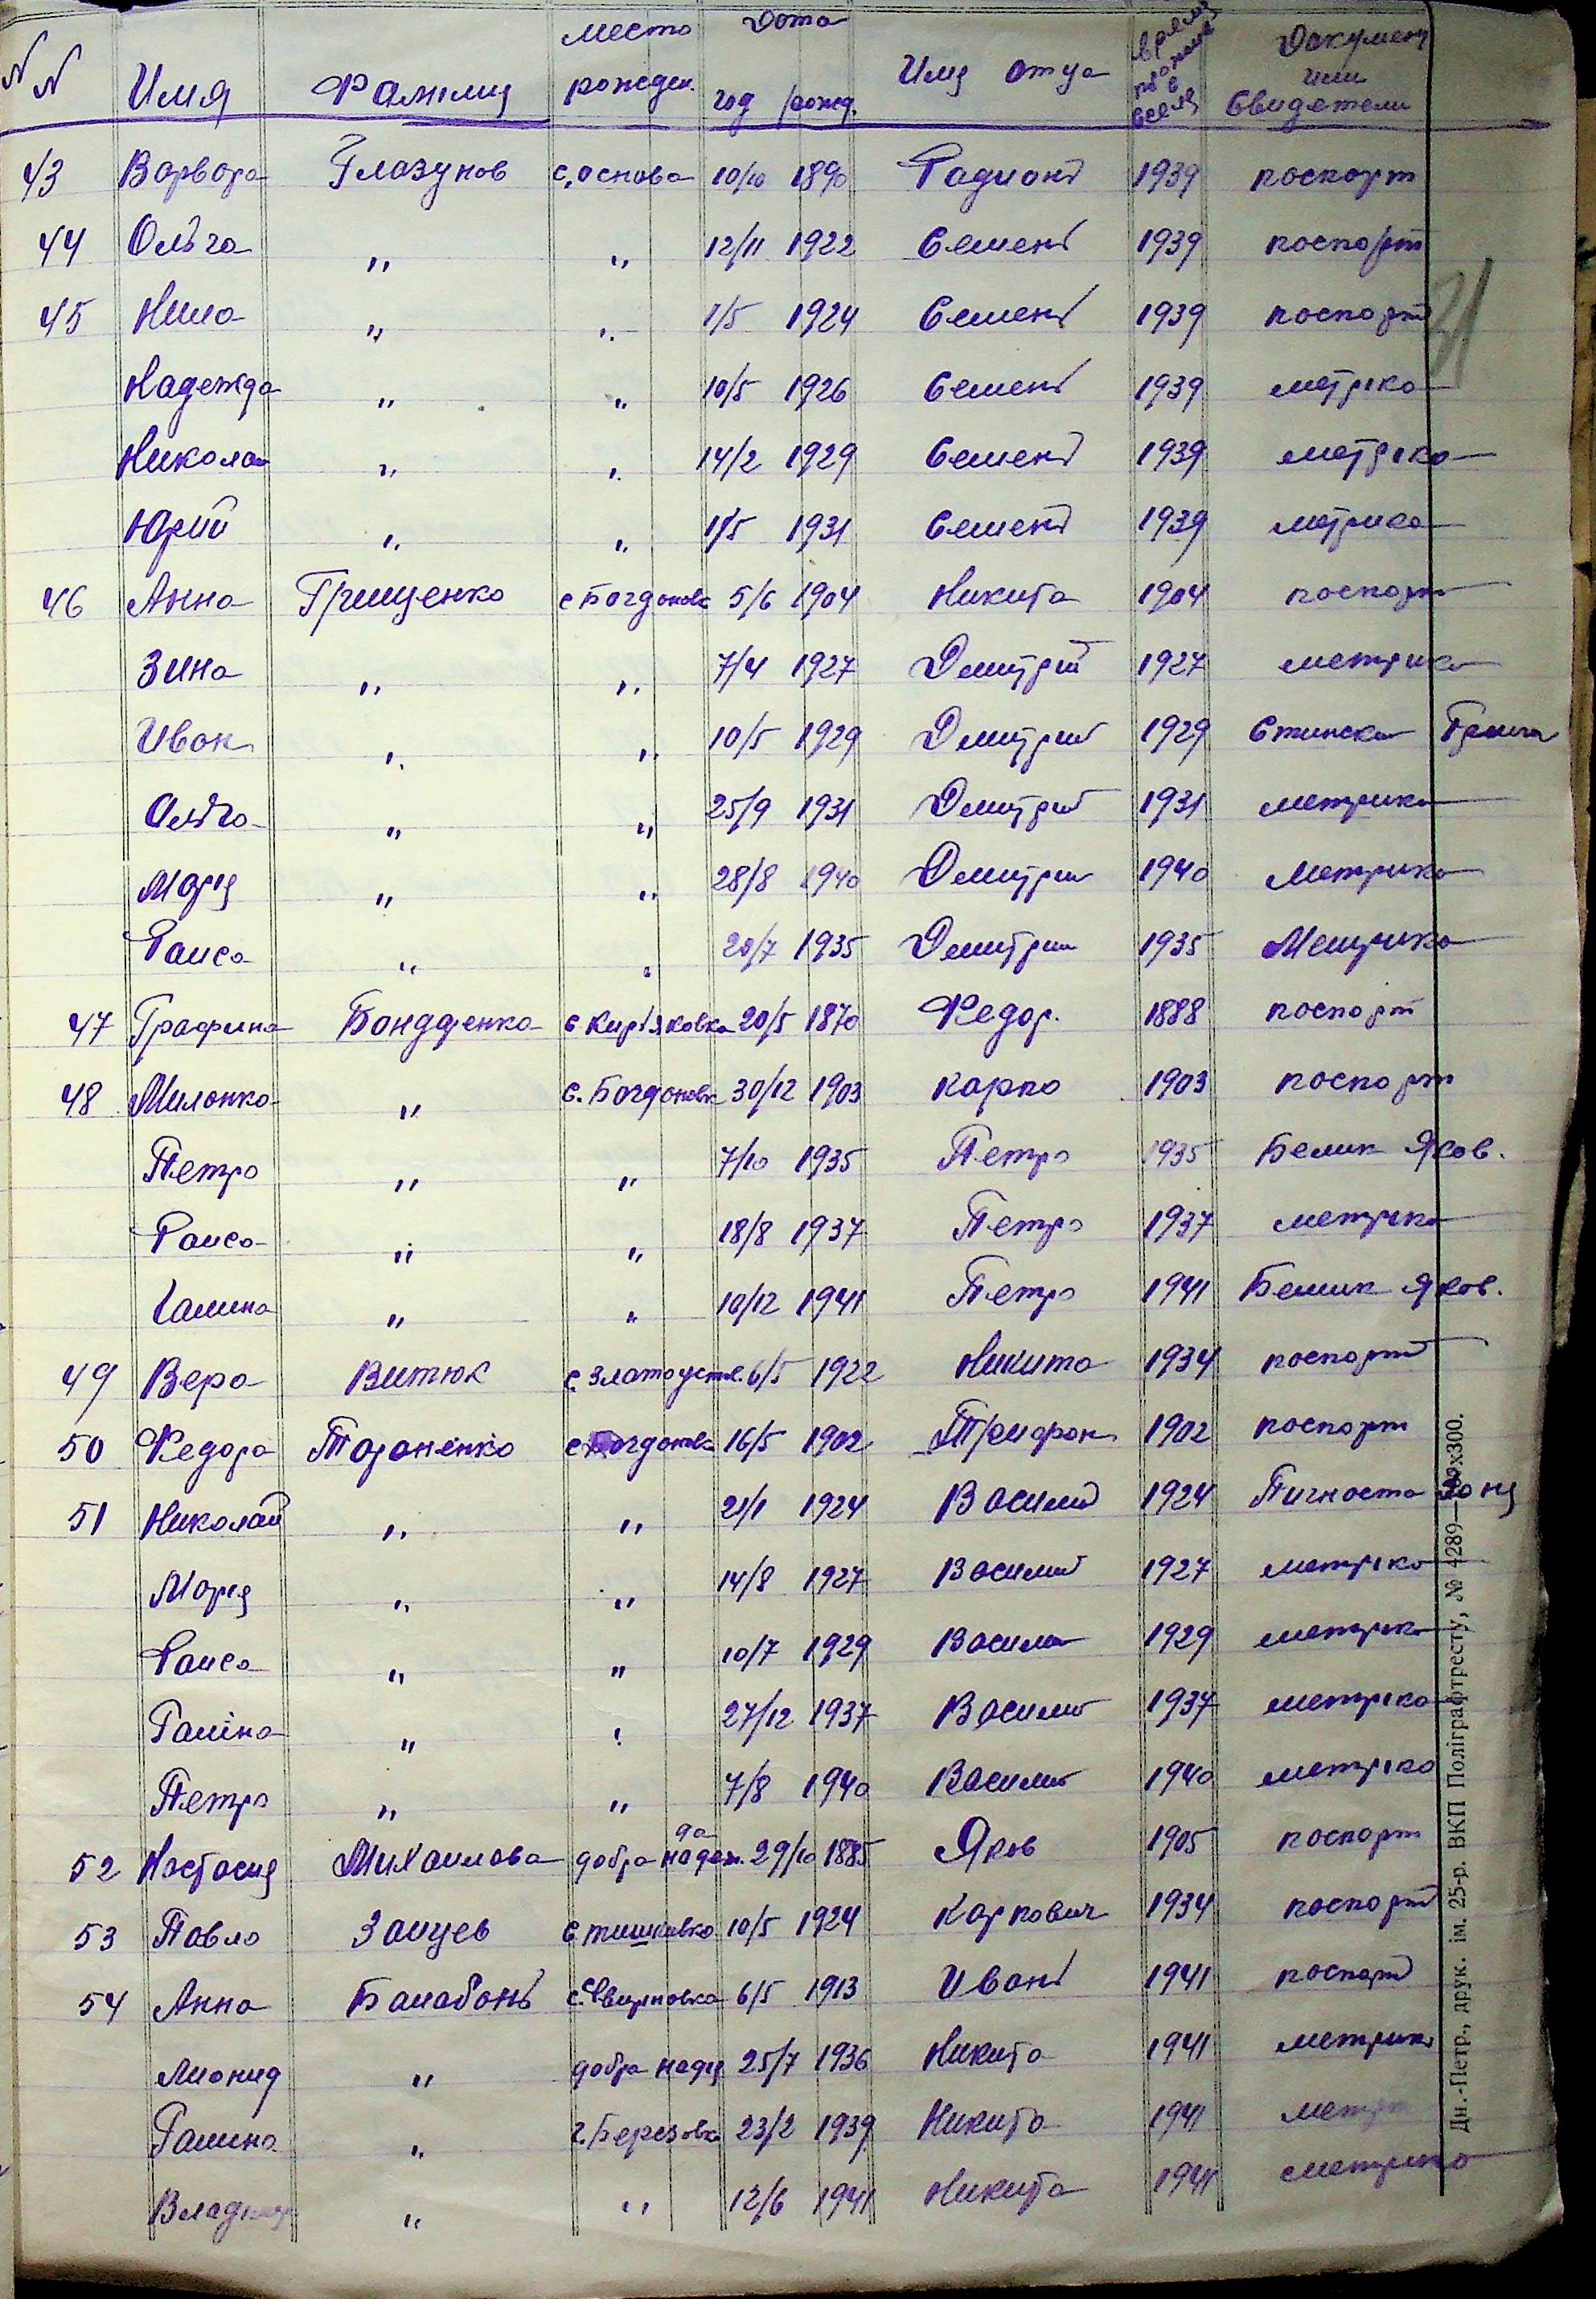 N N Имя Фамилия место рожден. Дата год рожд. Имя отца время прожив. в селе Документ или Свидетели
43 Варвара Глазунов с. основа 10/10 1890 Радионъ 1939 паспорт
44 Ольга " " 12/11 1922 Семенъ 1939 паспорт
45 Нина " " 1/5 1924 Семенъ 1939 паспорт
31
Надежда " " 10/5 1926 Семенъ 1939 метрика
Николай " " 14/2 1929 Семенъ 1939 метрика
Юрий " " 1/5 1931 Семенъ 1939 метрика
46 Анна Грищенко с Богдановк 5/6 1904 Никита 1904 паспорт
Зина " " 7/4 1927 Дмитрий 1927 метрика
Иван " " 10/5 1929 Дмитрий 1929
Ольга " " 25/9 1931 Дмитрий 1931 метрика
Мария " " 28/8 1940 Дмитрий 1940 Метрика
Раиса " " 20/7 1935 Дмитрий 1935 Метрика
47 Графина Бондаренко с Кирьяковка 20/5 1870 Федор. 1888 паспорт
48 Миланка " с. Богдановк 30/12 1903 Карпо 1903 паспорт
Петро " " 7/10 1935 Петро 1935 Белик Яков.
Раиса " " 18/8 1937 Петро 1937 метрика
Галина " " 10/12 1941 Петро 1941 Белик Яков.
49 Вера Витюк с. Златоустов. 6/5 1922 Никита 1934 паспорт
50 Федора Тараненко с Богдановк 16/5 1902 Трифон 1902 паспорт
51 Николай " " 21/1 1924 Василий 1924
Мария " " 14/8 1927 Василий 1927 метрика
Раиса " " 10/7 1929 Василий 1929 метрика
Галіна " " 27/12 1937 Василий 1937 метрика
Петро " " 7/8 1940 Василий 1940 метрика
52 Настасия Михаилова добра надеж. да 29/10 1885 Яков 1905 паспорт
53 Павло Зайцев с. тишкивка 10/5 1924 Карпович 1934 паспорт
54 Анна Балабонь с. Свирновка 6/5 1913 Иванъ 1941 паспорт
Лионид " добра надя 25/7 1936 Никита 1941 метрика
Галина " г. Березовка 23/2 1939 Никита 1941 метри
Владимир " " 12/6 1941 Никита 1941 метрика
Дн.-Петр., друк. ім. 25-р. ВКП Поліграфтресту, № 4289— х300.